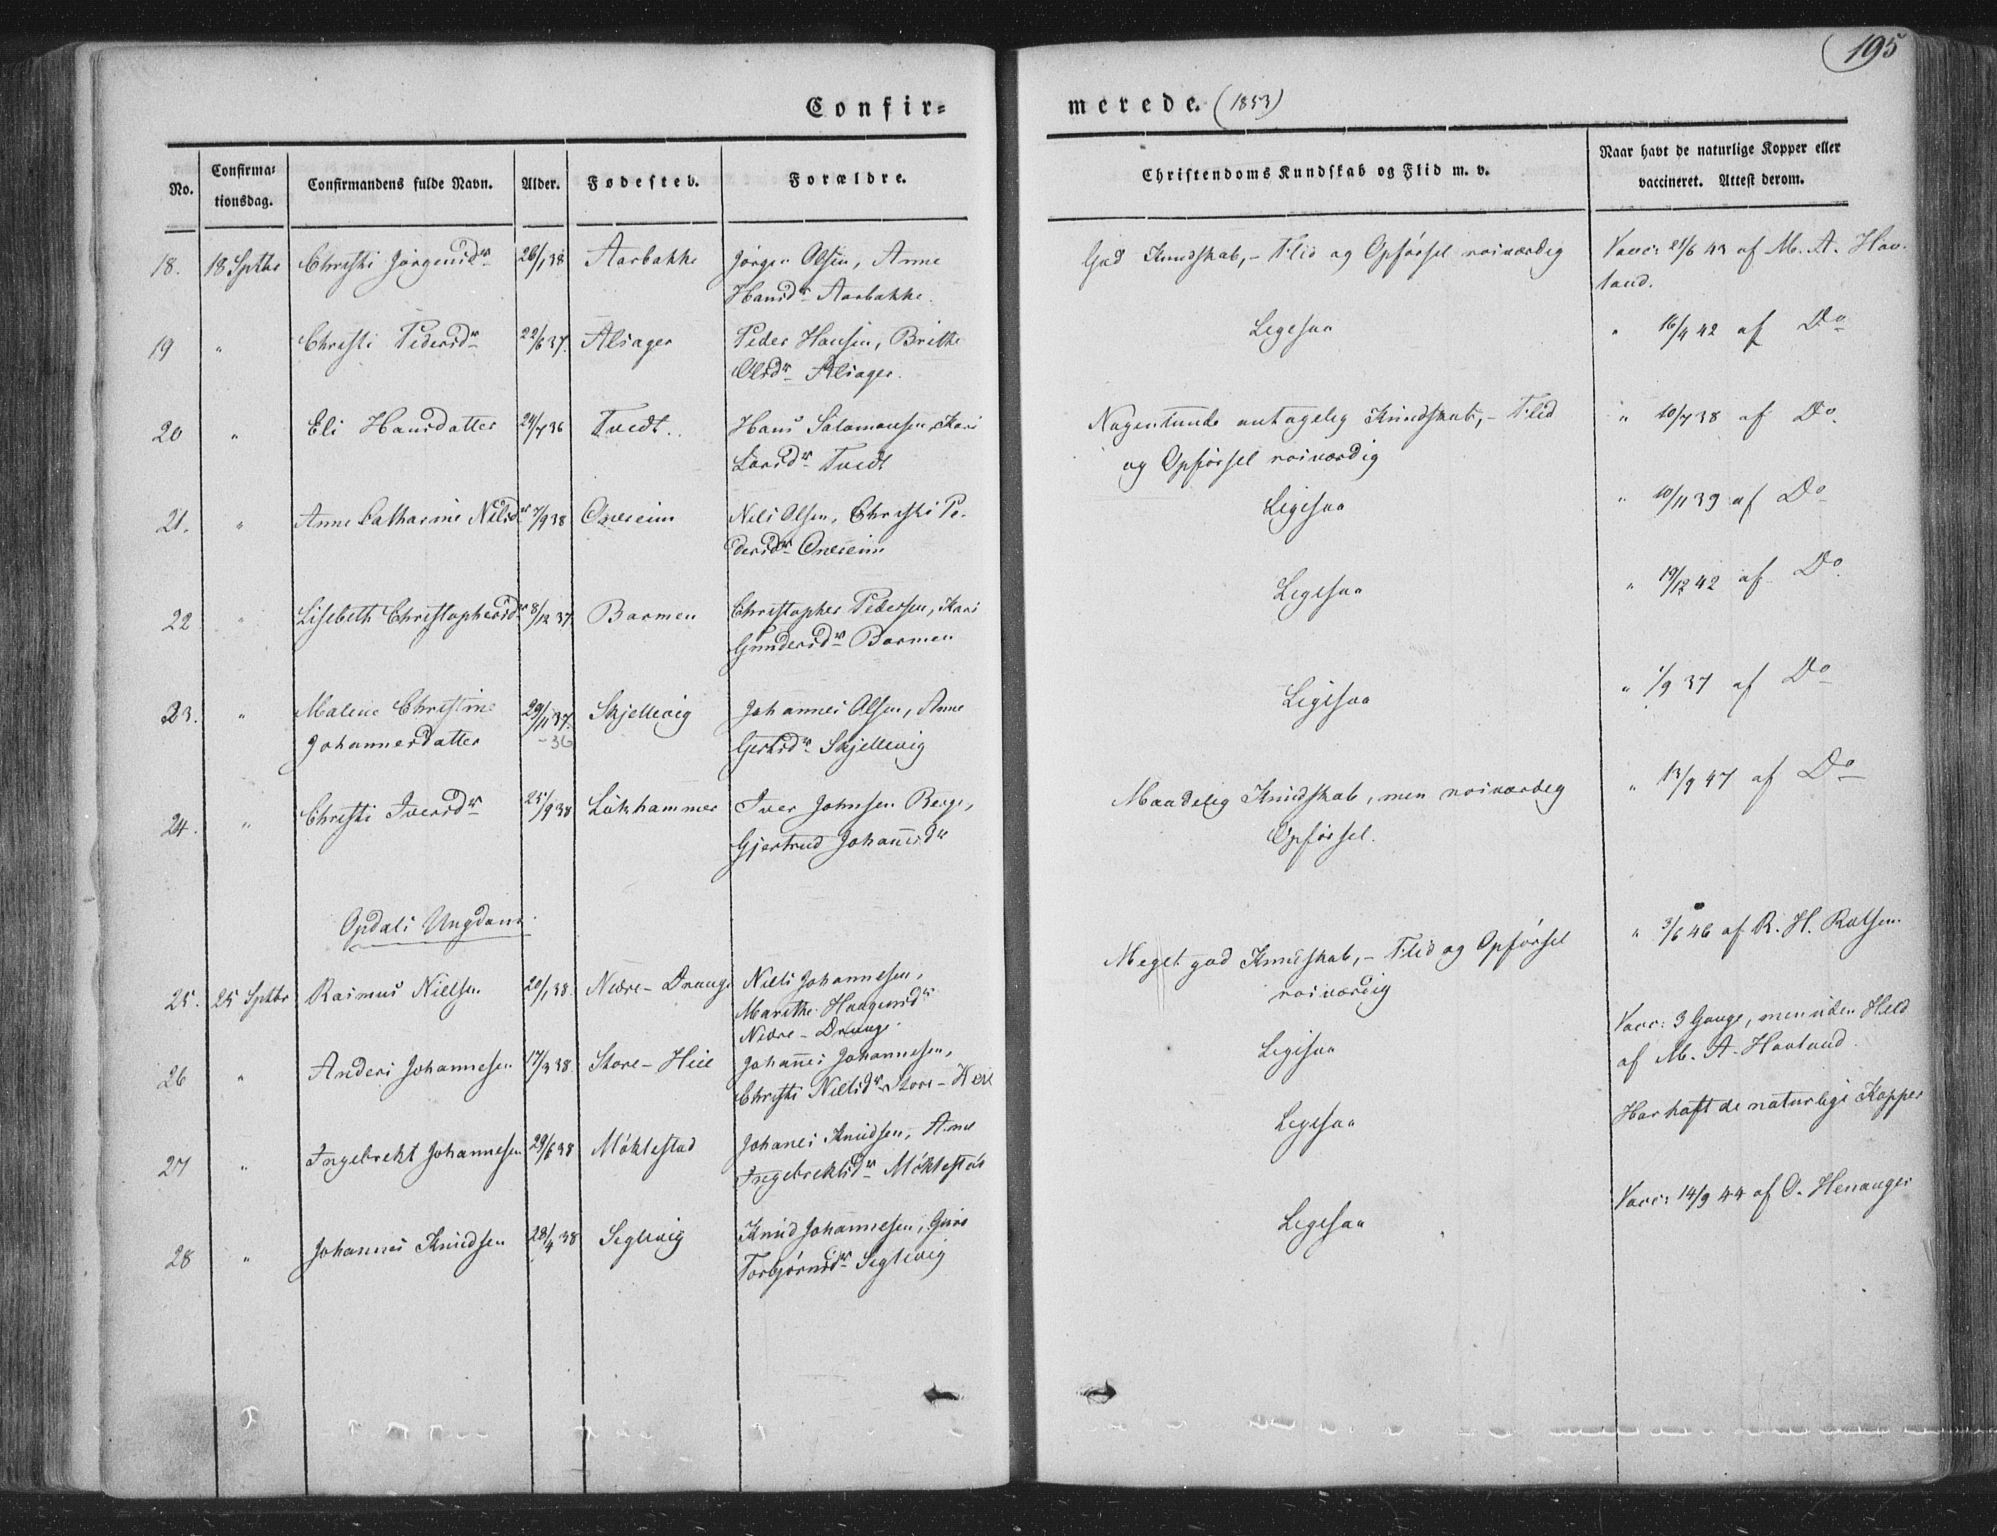 195
Confir=
merede. (1853)
No.
Confirma=
tionsdag.
Confirmandens fulde Navn.
Alder.
Fødested.
Forældre.
Christendoms Kundskab og Flid m. v.
Naar havt de naturlige Kopper eller
vaccineret. Attest derom.
18. 18 Sptbr Christi Jørgensdr 26/1 38 Aarbakke Jørgen Olsen, Anne
Hansdr Aarbakke.
God Kundskab, - Flid og Opførsel roisværdig
Vacc: 21/6 43 af M. A. Hav-
land.
19 " Christi Pedersdr 22/6 37. Alsager Peder Hansen, Brithe
Olsdr Alsager.
Ligesaa
" 16/4 42 af Do
20 " Eli Hansdatter 24/4 36 Tvedt. Hans Salomonsen, Kari
Larsdr Tvedt
Nogenlunde antagelig Kundskab, - Flid
og Opførsel roisværdig
" 10/7 38 af Do.
21. " Anne Catharine Nilsdr 7/9 38 Onereim Nils Olsen, Christi Pe-
dersdr Onereim
Ligesaa
" 10/11 39 af Do
22 " Lisebeth Christophersdr 8/12 37 Barmen Christopher Pedersen, Kari
Gundersdr Barmen
Ligesaa
" 19/12 42 af Do.
23. " Malene Christine 29/11 37. Skjellevig Johannes Olsen, Anne
Johannesdatter -36 Gertsdr Skjellevig
Ligesaa
" 1/9 37 af Do
24. " Christi Iversdr 25/9 38 Lukshammer Iver Johnsen Berge,
Gjertrud Johannsdr
Maadelig Kundskab, men roisværdig
Opførsel.
" 13/9 47 af Do
Opdals Ungdom.
25. 25 Sptbr Rasmus Nielsen 20/1 38. Nedre-Drange Niels Johannesen,
Marithe Haagensdr
Nedre-Drange.
Meget god Kundskab, - Flid og Opførsel
roisværdig
" 3/6 46 af R. H. Rolfsen
26 " Anders Johannesen 17/3 38. Store-Hie Johannes Johannesen,
Christi Nielsdr Store-Hie
Ligesaa
Vacc: 3 Gange, men uden Held
af M. A. Havland.
27 " Ingebrekt Johannesen 29/6 38 Møklestad Johanes Knudsen, Anne
Ingebrektsdr Møklestad
Ligesaa
Har haft de naturlige Kopper
28 " Johannes Knudsen 28/4 38 Seglevig Knud Johannesen, Guro
Torbjørnsdr Seglevig
Ligesaa
Vacc: 14/9 44 af O. Henanger